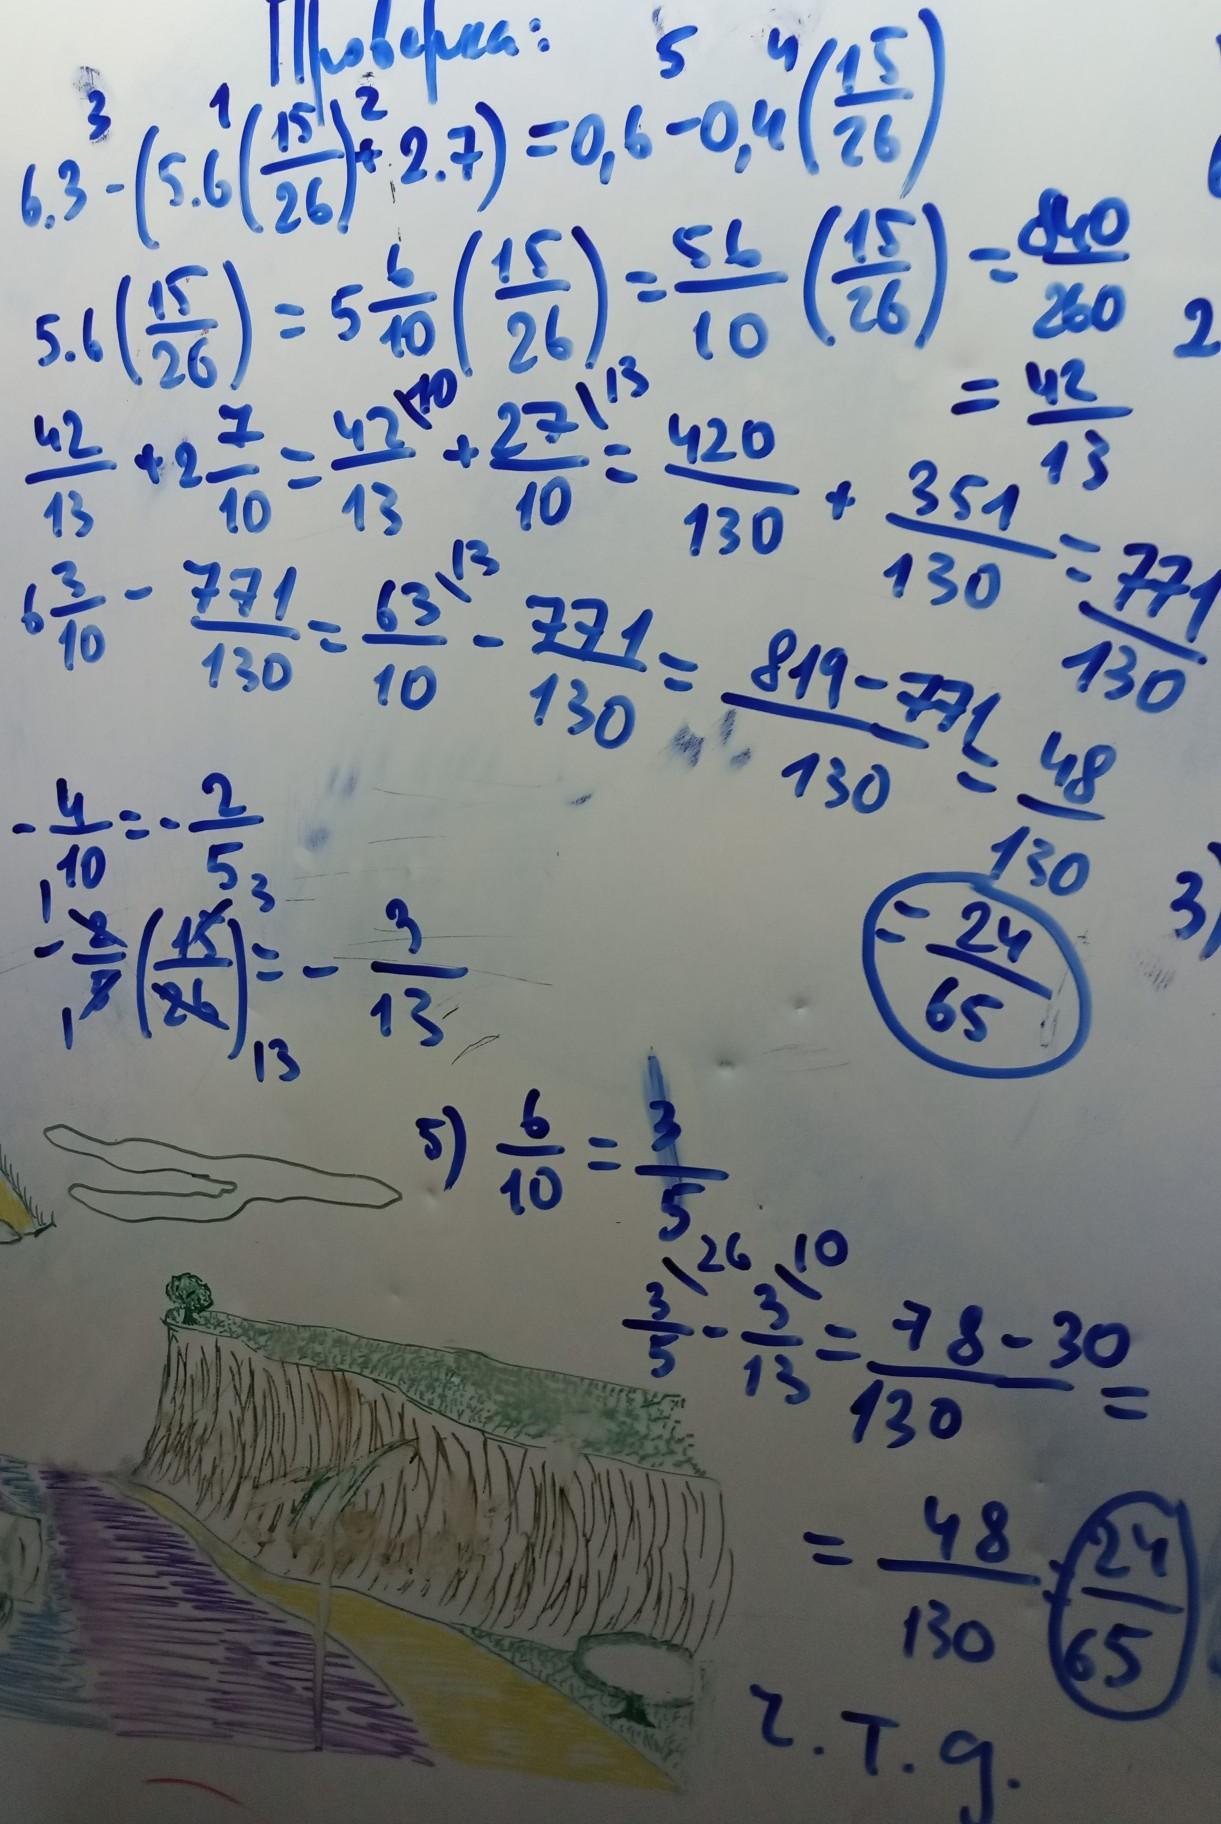 Проверка:
3 1 2 5 4
6.3 - (5.6(15/26) + 2.7) = 0,6 - 0,4(15/26)
5.6(15/26) = 5 6/10 (15/26) = 56/10 (15/26) = 840/260
= 42/13
42/13 + 2 7/10 = 42/13 \10 + 27/10 \13 = 420/130 + 351/130 = 771/130
6 3/10 - 771/130 = 63/10 \13 - 771/130 = 819-771/130 = 48/130
= 24/65
- 4/10 = - 2/5
1 3
- 2/5 (15/26) = - 3/13
1 13
5) 6/10 = 3/5
3/5 \26 - 3/13 \10 = 78-30/130 =
= 48/130 = 24/65
ч.т.д.
2
3)